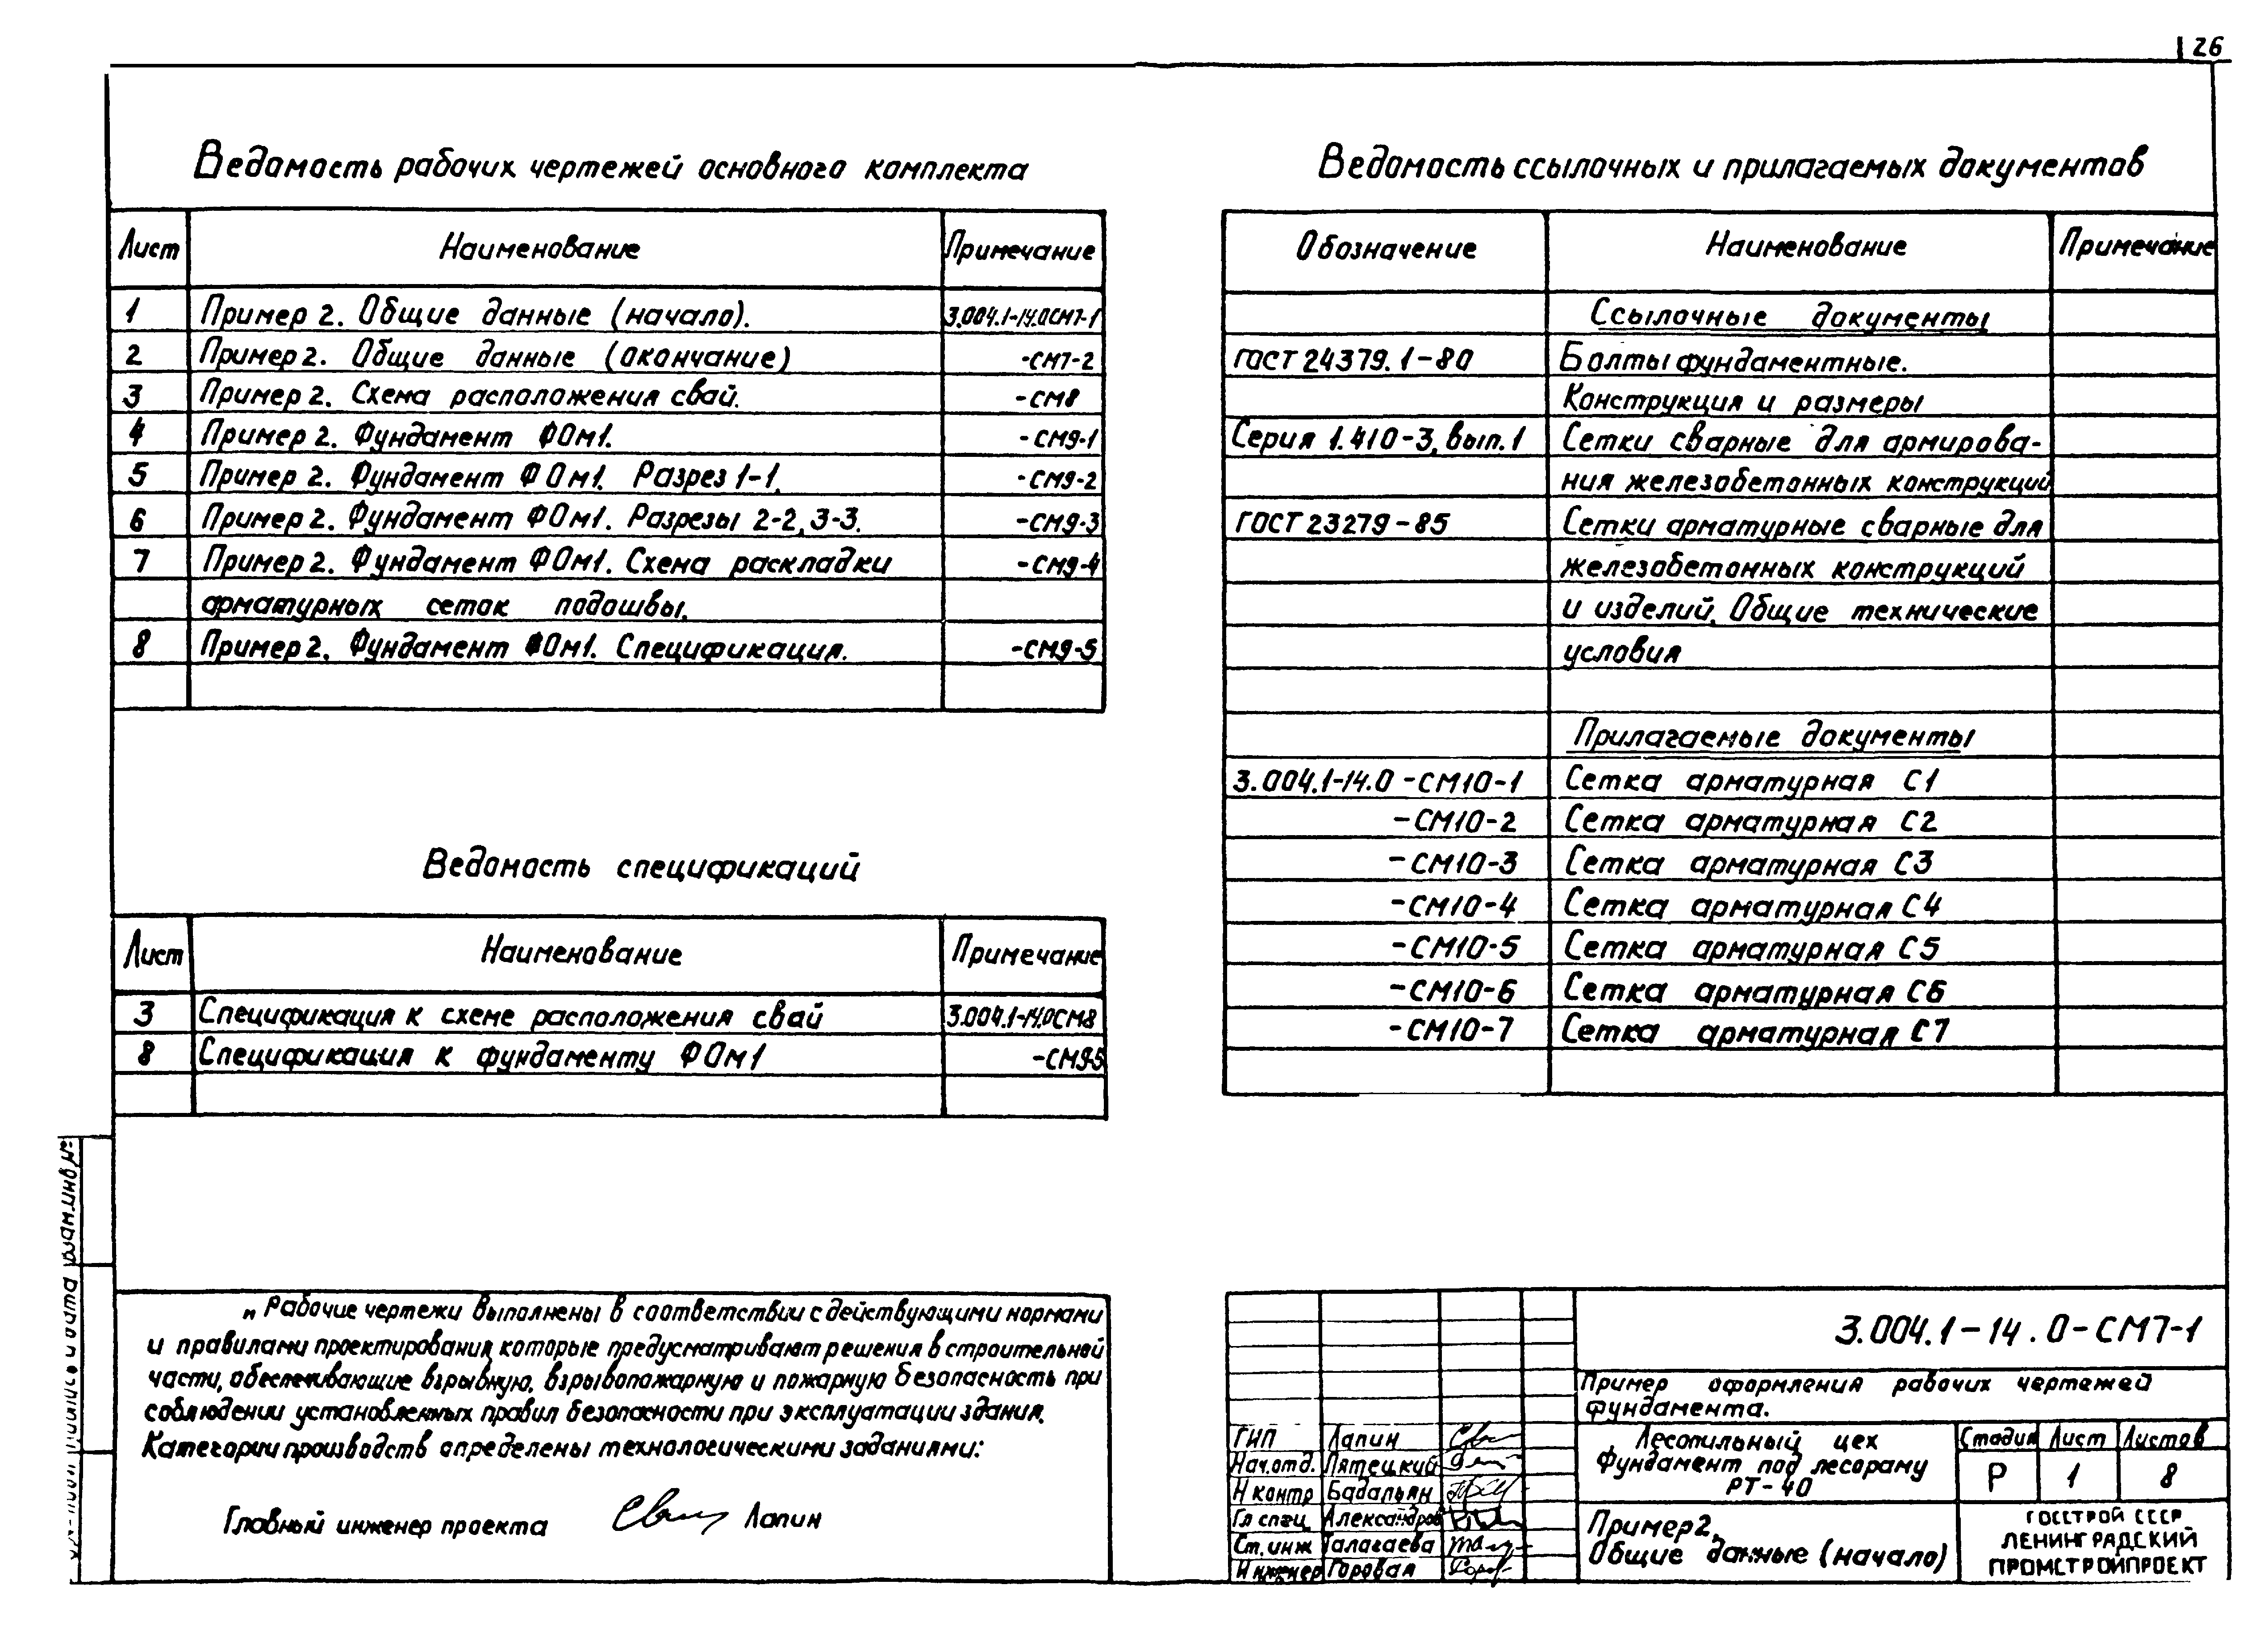 26
Ведомость рабочих чертежей основного комплекта
Лист Наименование Примечание
1 Пример 2. Общие данные (начало). 3.004.1-14.0СМ7-1
2 Пример 2. Общие данные (окончание) -СМ7-2
3 Пример 2. Схема расположения свай. -СМ8
4 Пример 2. Фундамент ФОм1. -СМ9-1
5 Пример 2. Фундамент ФОм1. Разрез 1-1. -СМ9-2
6 Пример 2. Фундамент ФОм1. Разрезы 2-2, 3-3. -СМ9-3
7 Пример 2. Фундамент ФОм1. Схема раскладки -СМ9-4
арматурных сеток подошвы.
8 Пример 2. Фундамент ФОм1. Спецификация. -СМ9-5
Ведомость спецификаций
Лист Наименование Примечание
3 Спецификация к схеме расположения свай 3.004.1-14.0СМ8
8 Спецификация к фундаменту ФОм1 -СМ9-5
„Рабочие чертежи выполнены в соответствии с действующими нормами
и правилами проектирования, которые предусматривают решения в строительной
части, обеспечивающие взрывную, взрывопожарную и пожарную безопасность при
соблюдении установленных правил безопасности при эксплуатации здания.
Категории производств определены технологическими заданиями:
Главный инженер проекта Лапин
Ведомость ссылочных и прилагаемых документов
Обозначение Наименование Примечание
Ссылочные документы
ГОСТ 24379.1-80 Болты фундаментные.
Конструкция и размеры
Серия 1.410-3, вып.1 Сетки сварные для армирова-
ния железобетонных конструкций
ГОСТ 23279-85 Сетки арматурные сварные для
железобетонных конструкций
и изделий. Общие технические
условия
Прилагаемые документы
3.004.1-14.0-СМ10-1 Сетка арматурная С1
-СМ10-2 Сетка арматурная С2
-СМ10-3 Сетка арматурная С3
-СМ10-4 Сетка арматурная С4
-СМ10-5 Сетка арматурная С5
-СМ10-6 Сетка арматурная С6
-СМ10-7 Сетка арматурная С7
3.004.1-14.0-СМ7-1
Пример оформления рабочих чертежей
фундамента.
ГИП Лапин
Нач.отд. Пятецкий
Н контр Бадальян
Гл спец Александров
Ст.инж Талагаева
Инженер Горовая
Лесопильный цех
Фундамент под лесораму
РТ-40
Стадия Лист Листов
Р 1 8
Пример 2.
Общие данные (начало)
ГОССТРОЙ СССР
ЛЕНИНГРАДСКИЙ
ПРОМСТРОЙПРОЕКТ